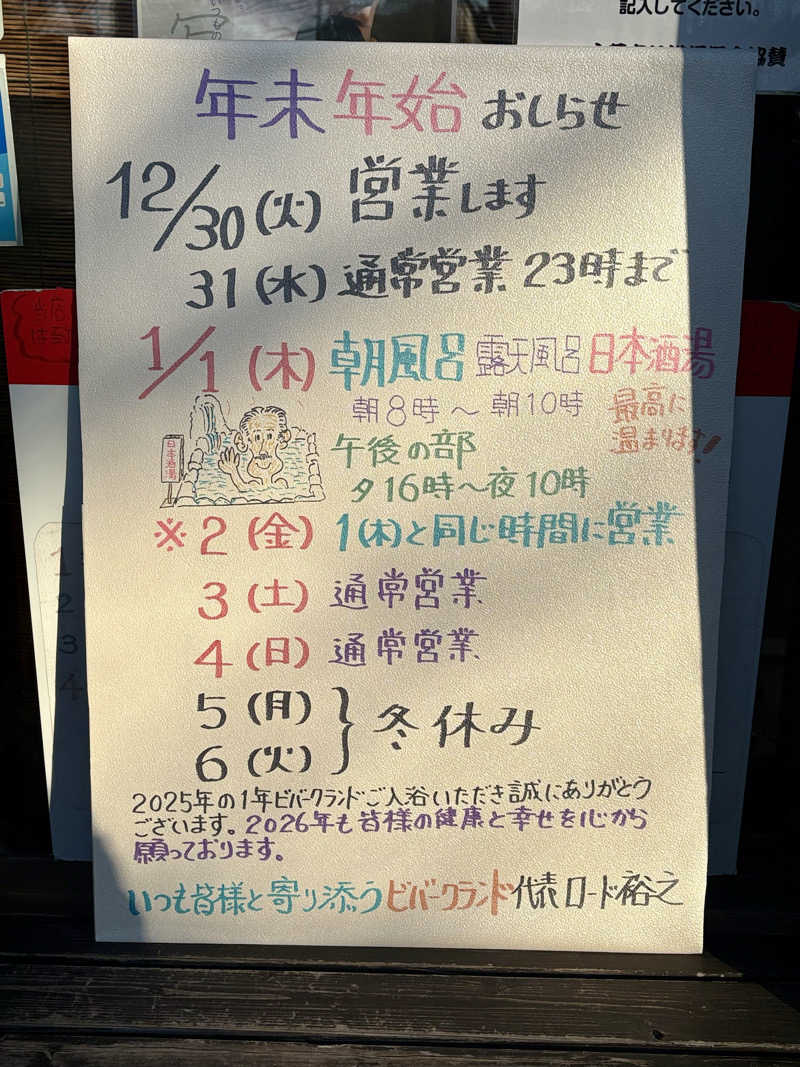 記入してください。
年末年始 おしらせ
12/30(火) 営業します
31(水) 通常営業 23時まで
1/1(木) 朝風呂 露天風呂 日本酒湯
朝8時〜朝10時 最高に
温まります!
日本酒湯
午後の部
夕16時〜夜10時
※2(金) 1(木)と同じ時間に営業
3(土) 通常営業
4(日) 通常営業
5(月)
6(火) } 冬休み
2025年の1年ビバークランドご入浴いただき誠にありがとう
ございます。2026年も皆様の健康と幸せを心から
願っております。
いつも皆様と寄り添うビバークランド代表 ロード裕之
1
2
3
4